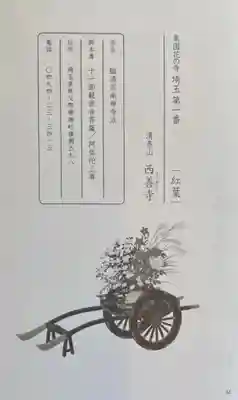 東国花の寺 埼玉第一番
一紅葉一
清泰山 西善寺
宗派 臨済宗南禅寺派
御本尊 十一面観世音菩薩/阿弥陀三尊
住所 埼玉県秩父郡横瀬町横瀬五九八
電話 〇四九四-二三-三四一三